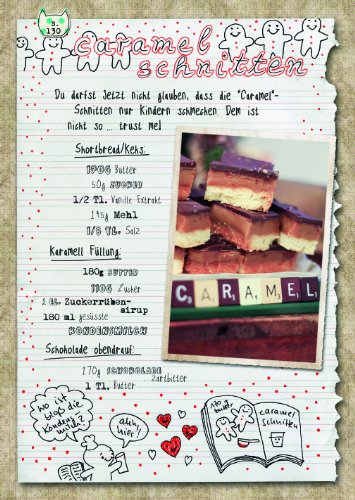 S. 130
caramel
schnitten
Du darfst Jetzt nicht glauben, dass die "Caramel"-
Schnitten nur Kindern schmecken. Dem ist
nicht so ... trust me!
Shortbread/Keks:
Butter
50g ZUCKER
1/2 TL. Vanille Extrakt
Mehl
1/8 TL. Salz
Karamell Füllung:
180g BUTTER
110g Zucker
2 EL. Zuckerrüben-
sirup
180 ml gesüsste
KONDENSMILCH
Schokolade obendrauf:
170g SCHOKOLADE
zartbitter
1 TL. Butter
CARAMEL
wo ist
bloß die
Kondens
milch?
ahh!
hier!
caramel
schnitten